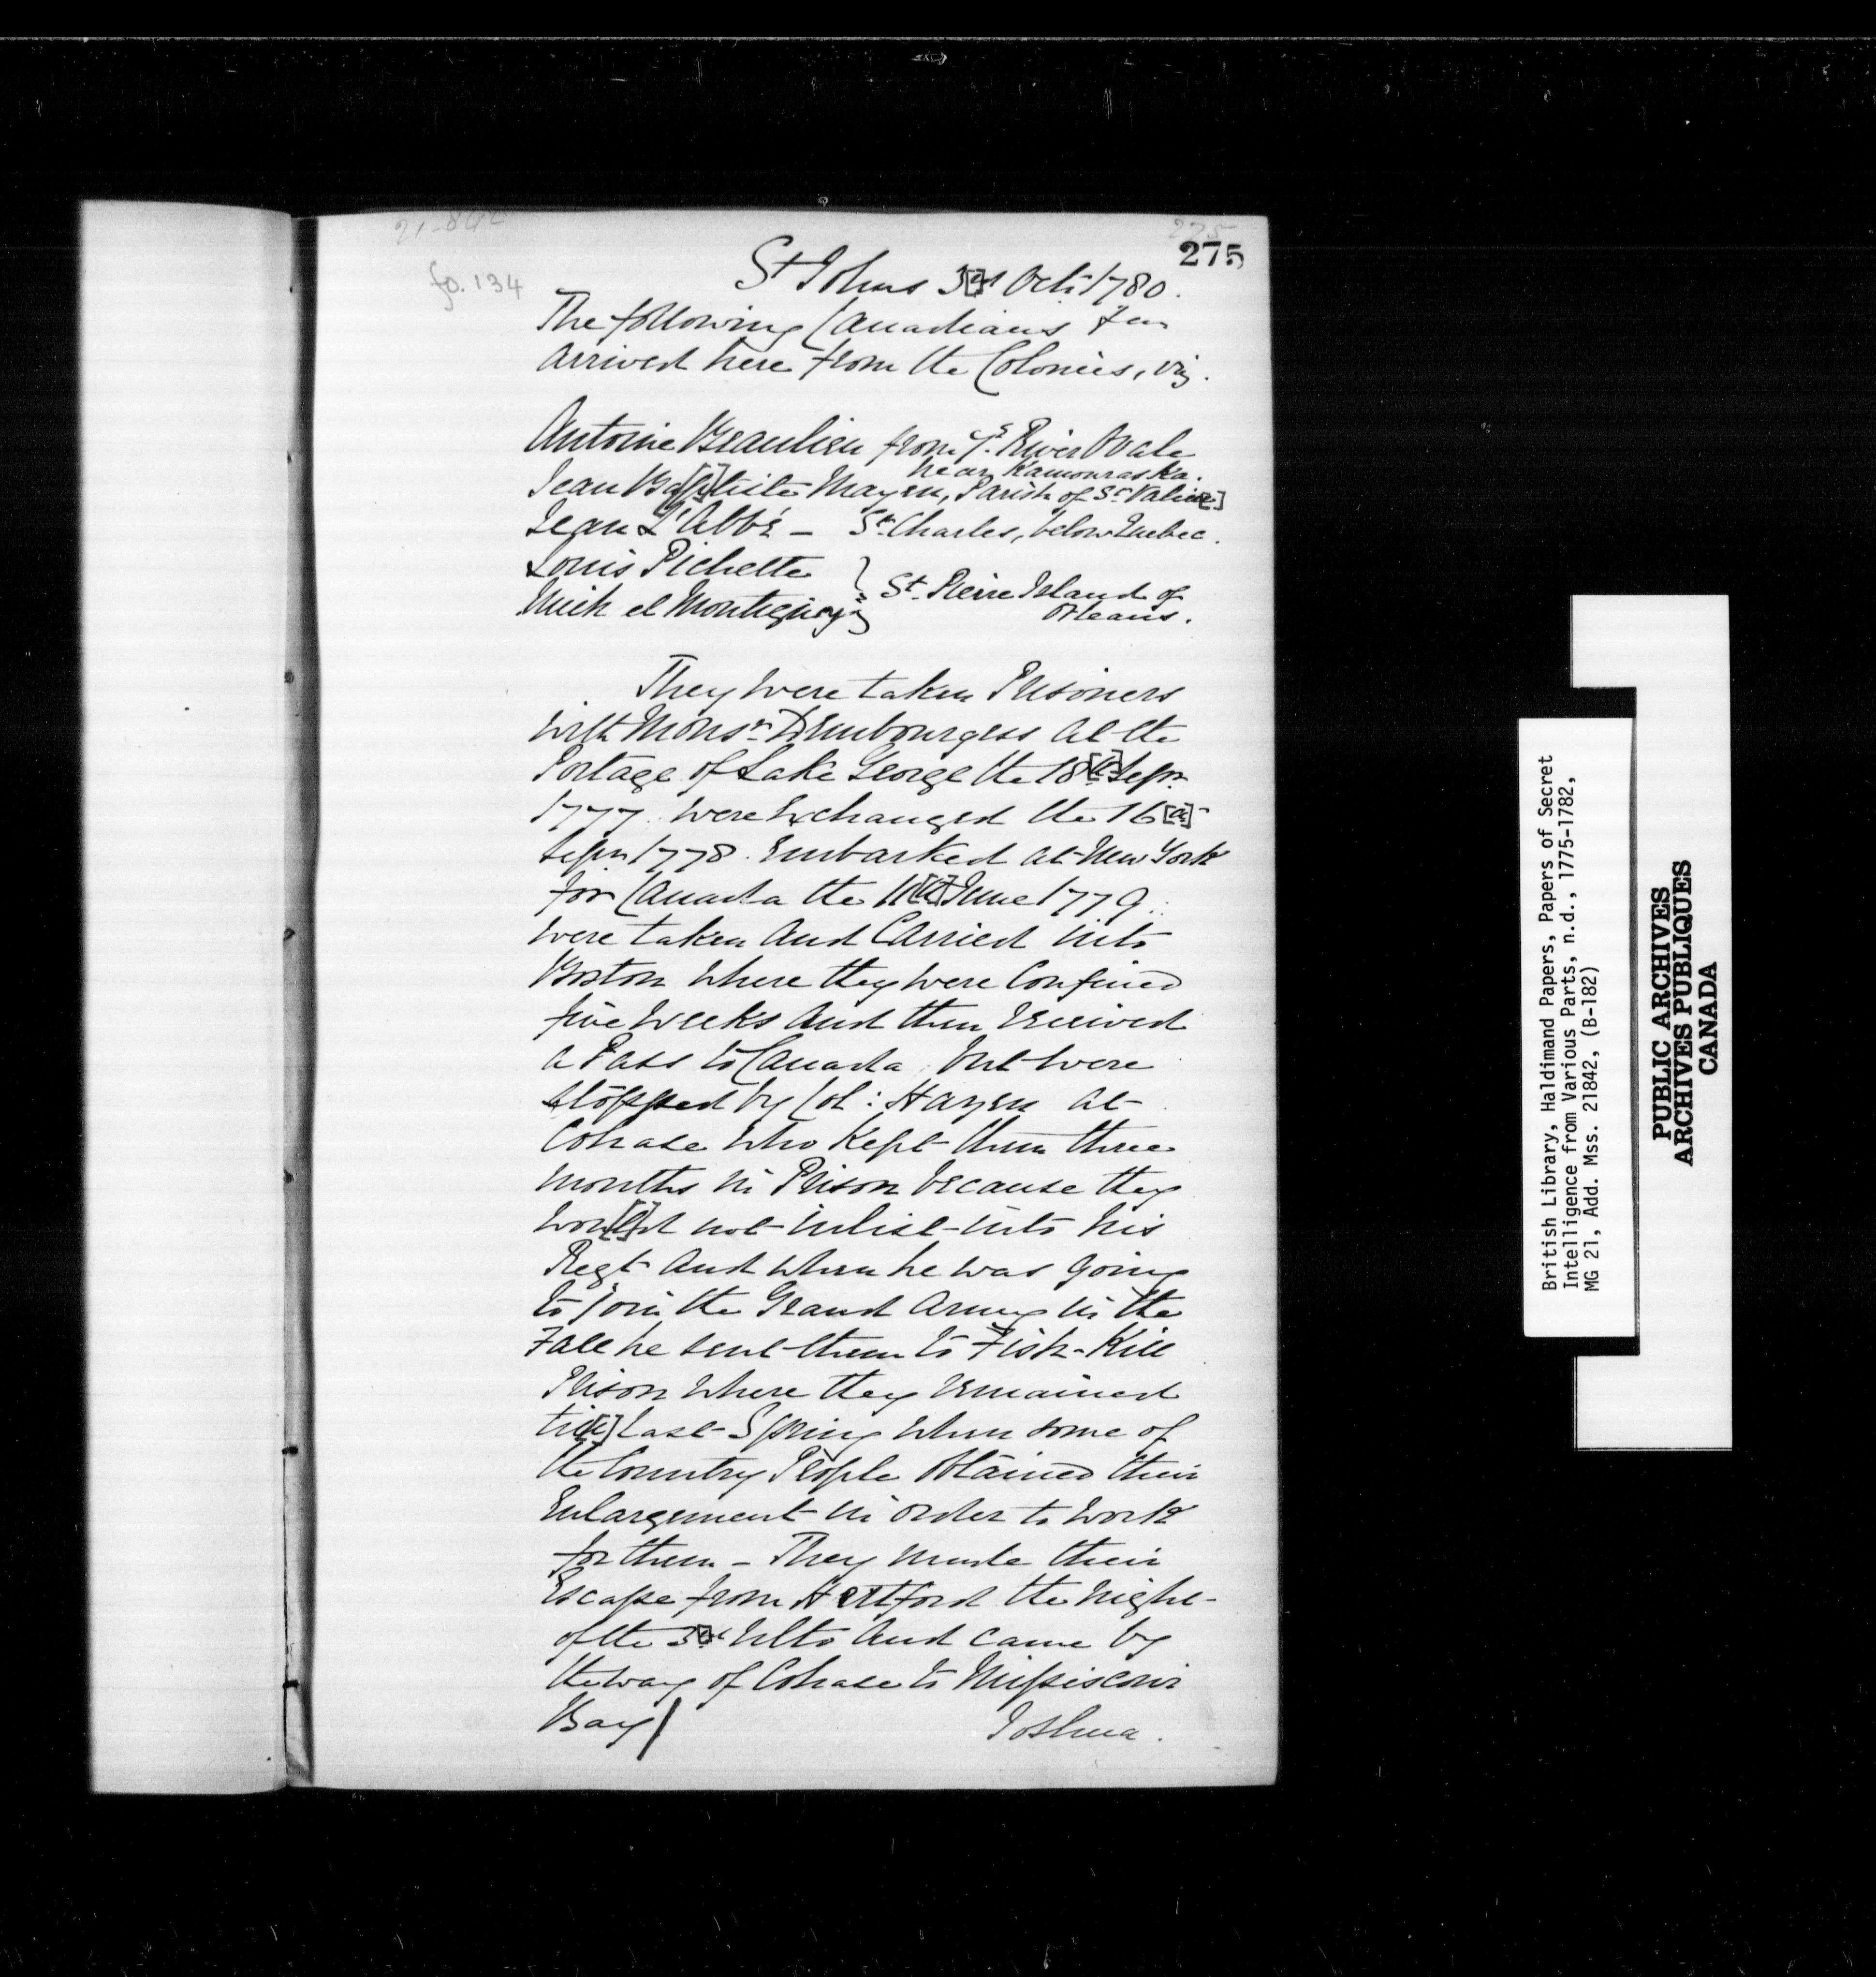 21-842
275
275
fo. 134
St Johns 3[d] Octr 1780.
The following Canadians
arrived here from the Colonies, viz.
Antoine Beaulieu from ye River Ovale
near Kamouraska.
Jean Ba[p]tiste Mayen, Parish of St Valier[]
Jean L'Abbé – St Charles, below Quebec.
Louis Pichette
Mich el Montigny } St Pierre Island of
Orleans.
They were taken Prisoners
with Monsr Dembourgess at the
Portage of Lake George the 18[th] Sepr
1777. were Exchanged the 16[th]
Sepr 1778. Embarked at New York
for Canada the 11[th] June 1779.
were taken and Carried into
Boston where they were Confined
five weeks and then received
a Pass to Canada, but were
stopped by Col: Hazen at
Cohase who Kept them three
months in Prison because they
wou[l]d not inlist into his
Regt and when he was going
to join the Grand Army in the
Fall he sent them to Fish-Kill
Prison where they remained
til[l] last Spring when some of
the Country People obtained their
Enlargement in order to work
for them – They made their
Escape from Hertford the night
of the 3[d] Ulto and came by
the way of Cohase to Missiscoui
Bay /
Joshua.
British Library, Haldimand Papers, Papers of Secret
Intelligence from Various Parts, n.d., 1775-1782,
MG 21, Add. Mss. 21842, (B-182)
PUBLIC ARCHIVES
ARCHIVES PUBLIQUES
CANADA